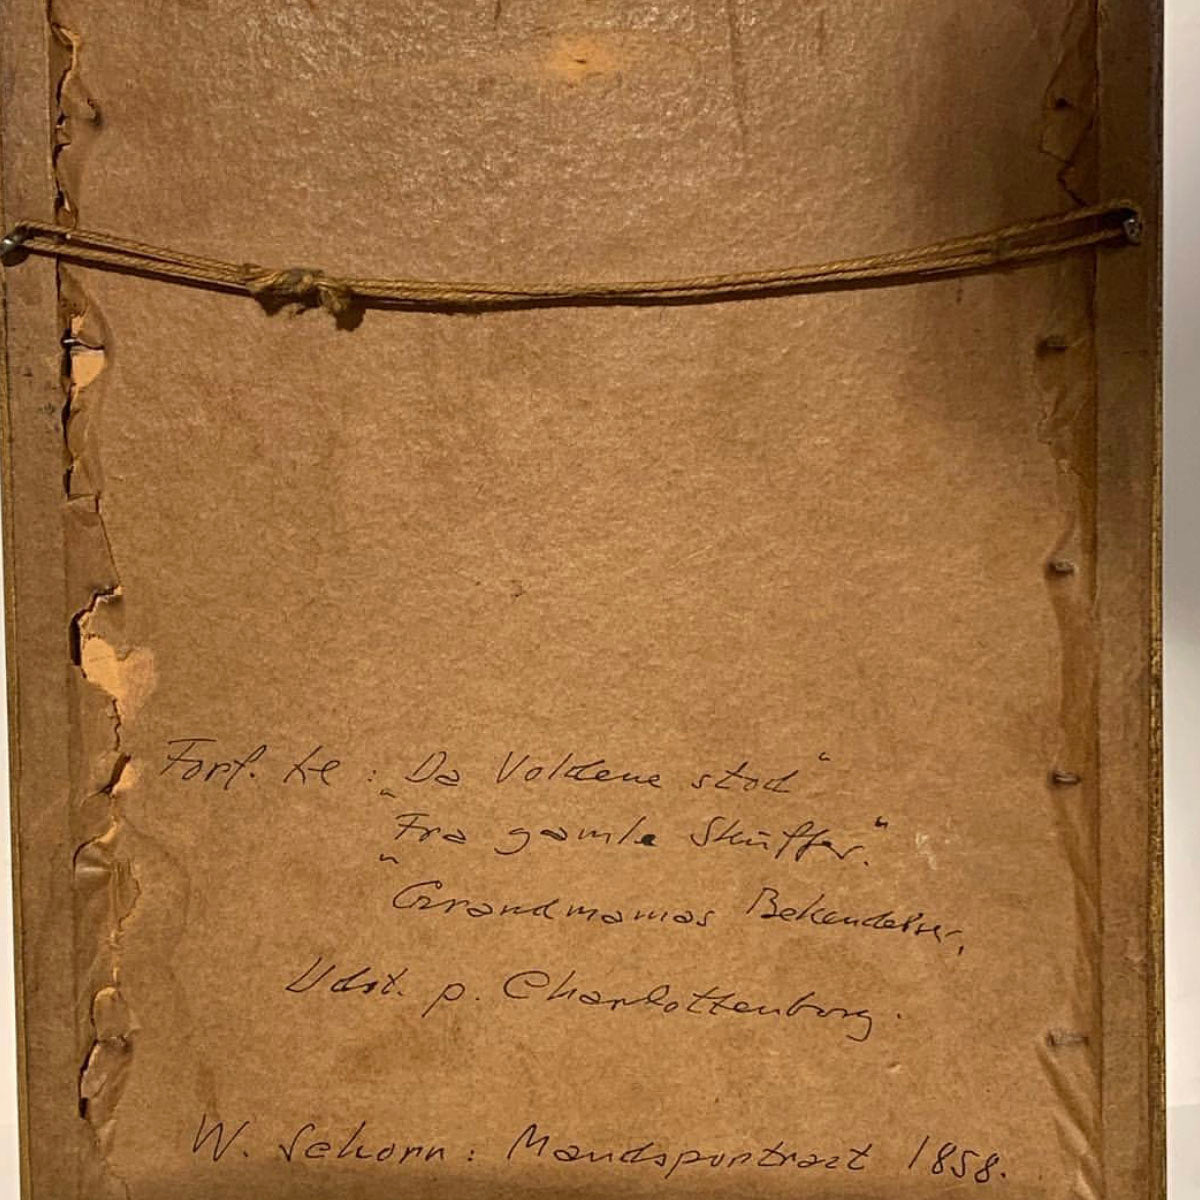 Forf. til: "Da Voldene stod"
"Fra gamle Skuffer."
"Grandmamas Bekendelser,
Udst. p. Charlottenborg.
W. Schorn: Mandsportræt 1858.